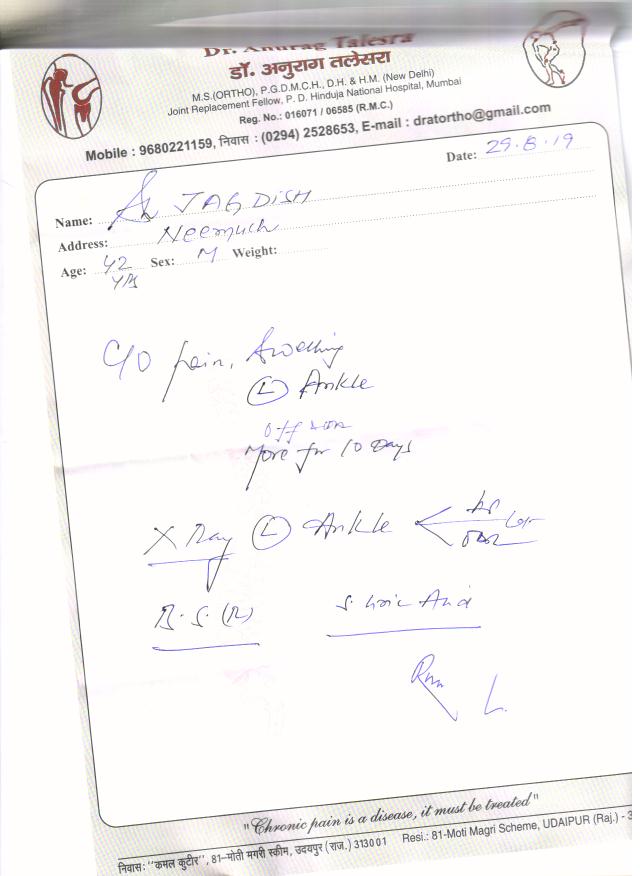 Dr. Anurag Talesra
डॉ. अनुराग तलेसरा
M.S.(ORTHO), P.G.D.M.C.H., D.H. & H.M. (New Delhi)
Joint Replacement Fellow, P. D. Hinduja National Hospital, Mumbai
Reg. No.: 016071 / 06585 (R.M.C.)
Mobile : 9680221159, निवास : (0294) 2528653, E-mail : dratortho@gmail.com
Date: 29.8.19
Name: JAGDISH
Address: Neemuch
Age: 42 yrs Sex: M Weight:
C/O pain, swelling
(L) Ankle
off & on
More for 10 Days
X Ray (L) Ankle AP Lat
B.S. (R) S. Uric Acid
"Chronic pain is a disease, it must be treated"
निवास: ''कमल कुटीर'', 81–मोती मगरी स्कीम, उदयपुर (राज.) 313001 Resi.: 81-Moti Magri Scheme, UDAIPUR (Raj.) - 3